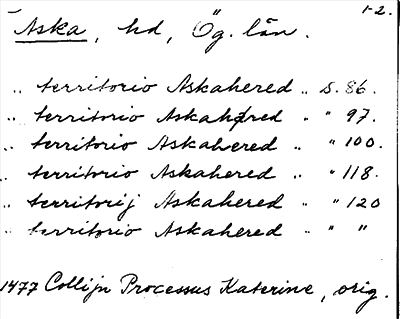 1-2.
Aska, hd, Ög. län.
.. territorio Askahered .. s. 86.
.. territorio Askahered .. " 97.
.. territorio Askahered .. " 100.
.. territorio Askahered .. " 118.
.. territorij Askahered .. " 120
.. territorio Askahered .. " "
1477 Collijn Processus Katerine, orig.